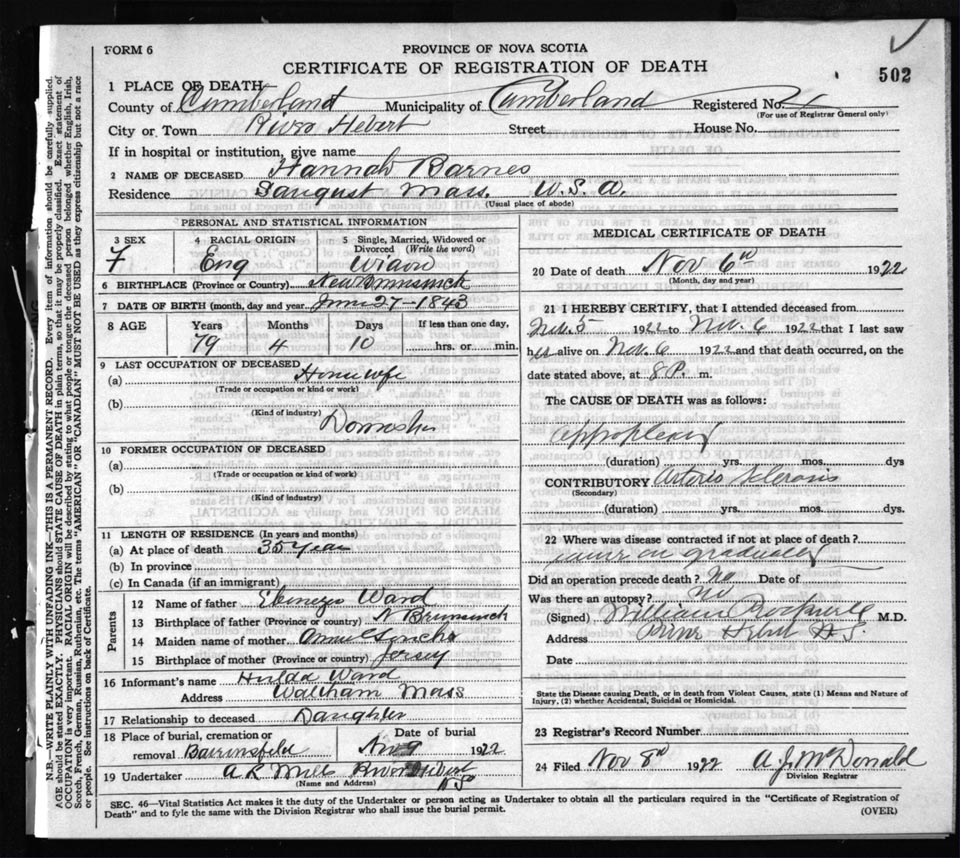 FORM 6
PROVINCE OF NOVA SCOTIA
CERTIFICATE OF REGISTRATION OF DEATH
502
1 PLACE OF DEATH
County of Cumberland Municipality of Cumberland Registered No.
(For use of Registrar General only)
City or Town River Hebert Street House No.
If in hospital or institution, give name
2 NAME OF DECEASED Hannah Barnes
Residence Saugust Mass. U.S.A.
(Usual place of abode)
PERSONAL AND STATISTICAL INFORMATION
3 SEX 4 RACIAL ORIGIN 5 Single, Married, Widowed or Divorced (Write the word)
F Eng Widow
6 BIRTHPLACE (Province or Country) New Brunswick
7 DATE OF BIRTH (month, day and year) June 27-1843
8 AGE Years Months Days If less than one day,
79 4 10 hrs. or min.
9 LAST OCCUPATION OF DECEASED
(a) Housewife
(Trade or occupation or kind or work)
(b)
(Kind of industry)
Domestic
10 FORMER OCCUPATION OF DECEASED
(a)
(Trade or occupation or kind of work)
(b)
(Kind of industry)
11 LENGTH OF RESIDENCE (In years and months)
(a) At place of death 35 Year
(b) In province
(c) In Canada (if an immigrant)
Parents
12 Name of father Ebenezer Ward
13 Birthplace of father (Province or country) N Brunswick
14 Maiden name of mother
15 Birthplace of mother (Province or country) Jersey
16 Informant's name Hulda Ward
Address Waltham Mass
17 Relationship to deceased Daughter
18 Place of burial, cremation or Date of burial
removal Barronsfield Nov 9 1922
19 Undertaker A R Mill River Hebert
(Name and Address) NS
MEDICAL CERTIFICATE OF DEATH
20 Date of death Nov 6th 1922
(Month, day and year)
21 I HEREBY CERTIFY, that I attended deceased from
Nov. 5 1922 to Nov. 6 1922 that I last saw
her alive on Nov. 6 1922 and that death occurred, on the
date stated above, at 8 P. m.
The CAUSE OF DEATH was as follows:
appoplexy
(duration) yrs. mos. dys
CONTRIBUTORY Arterio Sclerosis
(Secondary)
(duration) yrs. mos. dys.
22 Where was disease contracted if not at place of death?
came on gradually
Did an operation precede death? No Date of
Was there an autopsy? No
(Signed) William Rockwell M.D.
Address River Hebert N.S.
Date
State the Disease causing Death, or in death from Violent Causes, state (1) Means and Nature of
Injury, (2) whether Accidental, Suicidal or Homicidal.
23 Registrar's Record Number
24 Filed Nov 8th 1922 A. J. McDonald
Division Registrar
SEC. 46—Vital Statistics Act makes it the duty of the Undertaker or person acting as Undertaker to obtain all the particulars required in the "Certificate of Registration of
Death" and to fyle the same with the Division Registrar who shall issue the burial permit.
(OVER)
N.B.—WRITE PLAINLY WITH UNFADING INK—THIS IS A PERMANENT RECORD. Every item of information should be carefully supplied.
AGE should be stated EXACTLY. PHYSICIANS should STATE CAUSE OF DEATH in plain terms, so that it may be properly classified. Exact statement of
OCCUPATION is very important. RACIAL ORIGIN will be described by stating to what people or tongue the deceased person belonged whether English, Irish,
Scotch, French, German, Russian, Ruthenian, etc. The terms "AMERICAN" OR "CANADIAN" MUST NOT BE USED as they express citizenship but not a race
or people. See instructions on back of Certificate.